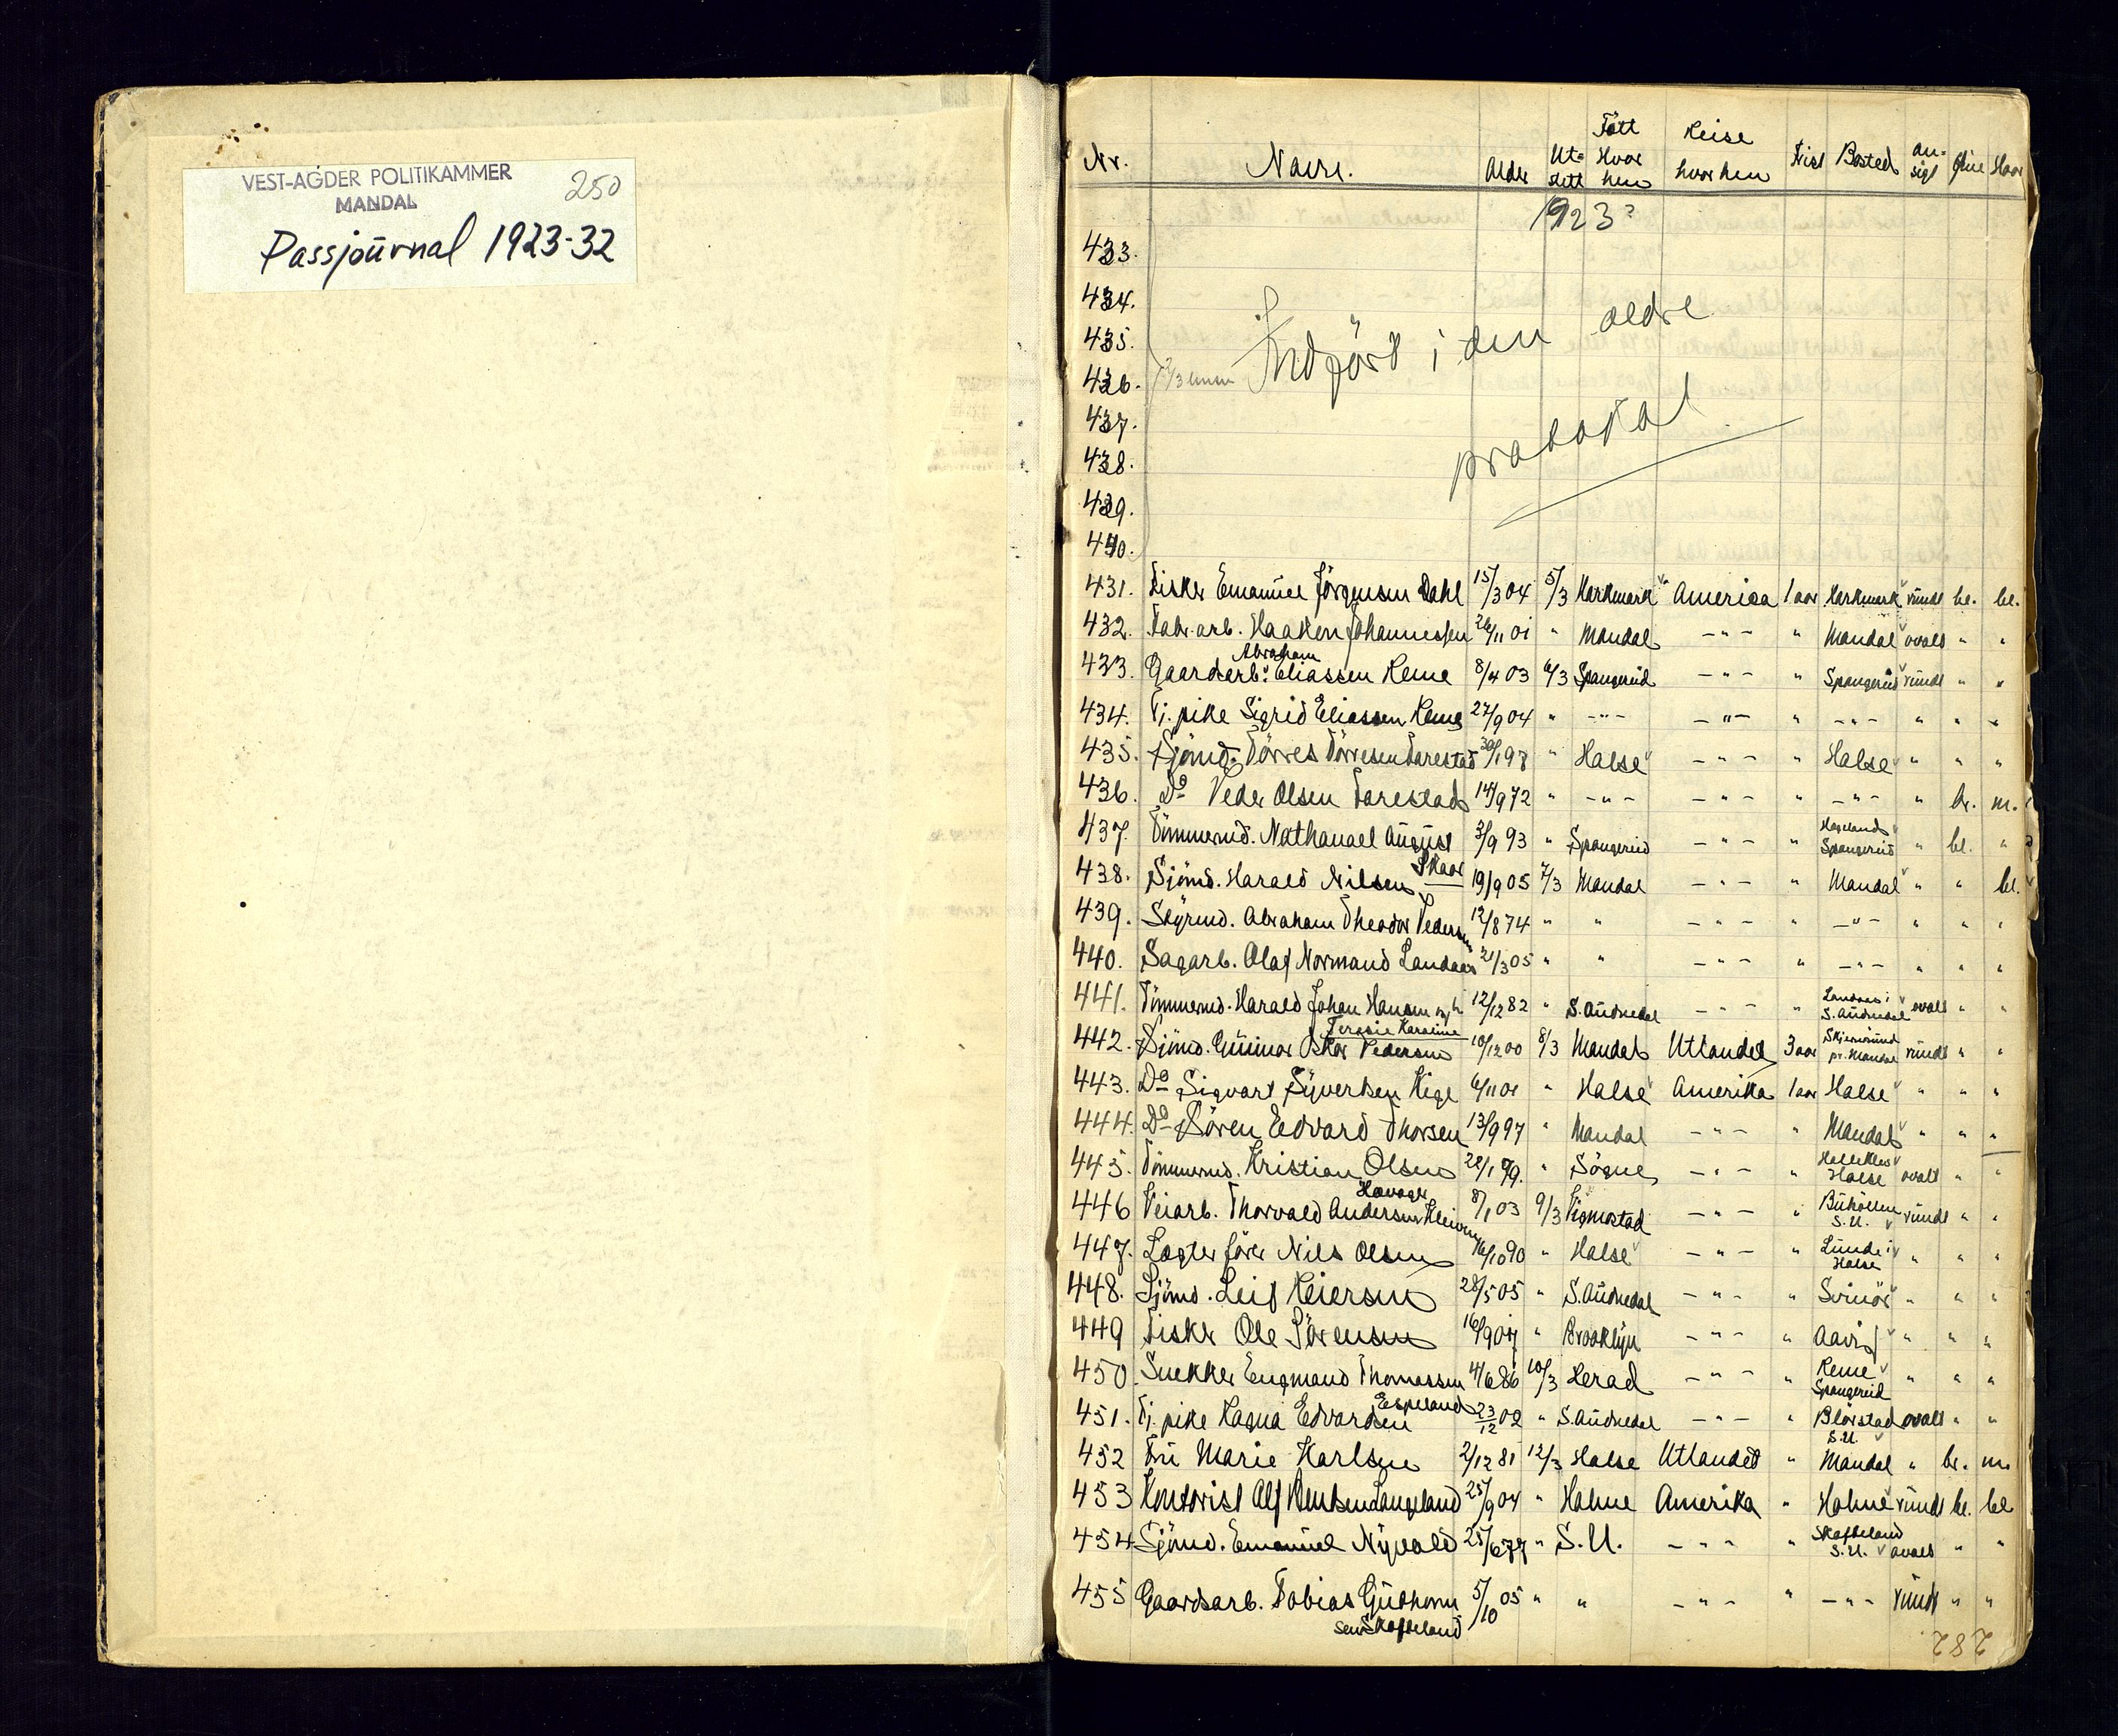 VEST-AGDER POLITIKAMMER
MANDAL
250
Passjournal 1923-32
Nr. Navn. Alder Ut= stett Fött Hvor hen Reise hvor hen Frist Bosted an= sigt Öine Haar
1923?
433.
434.
435.
436.
437.
438.
439.
440.
Indfört i den aeldre
protokol
431. Fisker Emanuel Jörgensen Dahl 15/3 04 5/3 Harkmark America 1 aar Harkmark rundt bl. bl.
432. Fabr. arb. Haakon Johannessen 26/11 01 " Mandal - " - " Mandal ovalt " "
433. Gaardarb. Abraham Eliassen Reme 8/4 03 6/3 Spangereid - " - " Spangereid rundt " "
434. Tj. pike Sigrid Eliassen Reme 27/9 04 " - " - - " - " - " - " " "
435. Sjömd. Törres Törresen Tarestad 30/1 98 " Halse - " - " Halse " " "
436. Do Peder Olsen Tarestad 14/9 72 " - " - - " - " - " - " br. m.
437. Tömmermd. Nathanael August Skaar 3/9 93 " Spangereid - " - " Hageland Spangereid " bl. "
438. Sjömd. Harald Nilsen 19/9 05 7/3 Mandal - " - " Mandal " " bl.
439. Styrmd. Abraham Theodor Pedersen 12/8 74 " " - " - " - " - " " "
440. Sagarb. Olaf Normand Landaas 21/3 05 " " - " - " - " - " " "
441. Tömmermd. Harald Johan Hansen 12/12 82 " S. Audnedal - " - " Landaas i S. Audnedal ovalt " "
Terasie Karoline
442. Sjömd. Gunnar Oskar Pedersen 10/12 00 8/3 Mandal Utlandet 3 aar Skjernösund pr. Mandal rundt " "
443. Do Sigvart Syvertsen Kige 6/11 01 " Halse Amerika 1 aar Halse " " "
444. Do Sören Edvard Thorsen 13/9 97 " Mandal - " - " Mandal " " "
445. Tömmermd. Kristian Olsen 28/1 79. " Sögne - " - " Halse ovalt " "
446 Veiarb. Thorvald Andersen Haavager Kleiven 8/1 03 9/3 Vigmostad - " - " S.U. rundt " "
447. Lagterförer Nils Olsen 16/10 90 " Halse - " - " Lunde i Halse " " "
448. Sjömd. Leif Reiersen 28/5 05 " S. Audnedal - " - " Svinör " " "
449 Fisker Ole Sörensen 16/9 04 " Brooklyn - " - " Aavig " " "
450. Snekker Engmand Thomassen 4/6 86 10/3 Herad - " - " Reme Spangereid " " "
451. Tj. pike Ragna Edvardsen Espeland 23/12 02 " S. Audnedal - " - " Blörstad S.U. ovalt " "
452 Fru Marie Karlsen 2/12 81 12/3 Halse Utlandet " Mandal " br. m.
453 Kontorist Alf Bentsen Langeland 25/9 04 " Holme Amerika " Holme rundt bl. bl
454 Sjömd. Emanuel Nyvold 25/6 77 " S.U. - " - " Skofteland S.U. ovalt " "
455 Gaardsarb. Tobias Guthorm sen Skofteland 5/10 05 " " - " - " - " - rundt " "
282